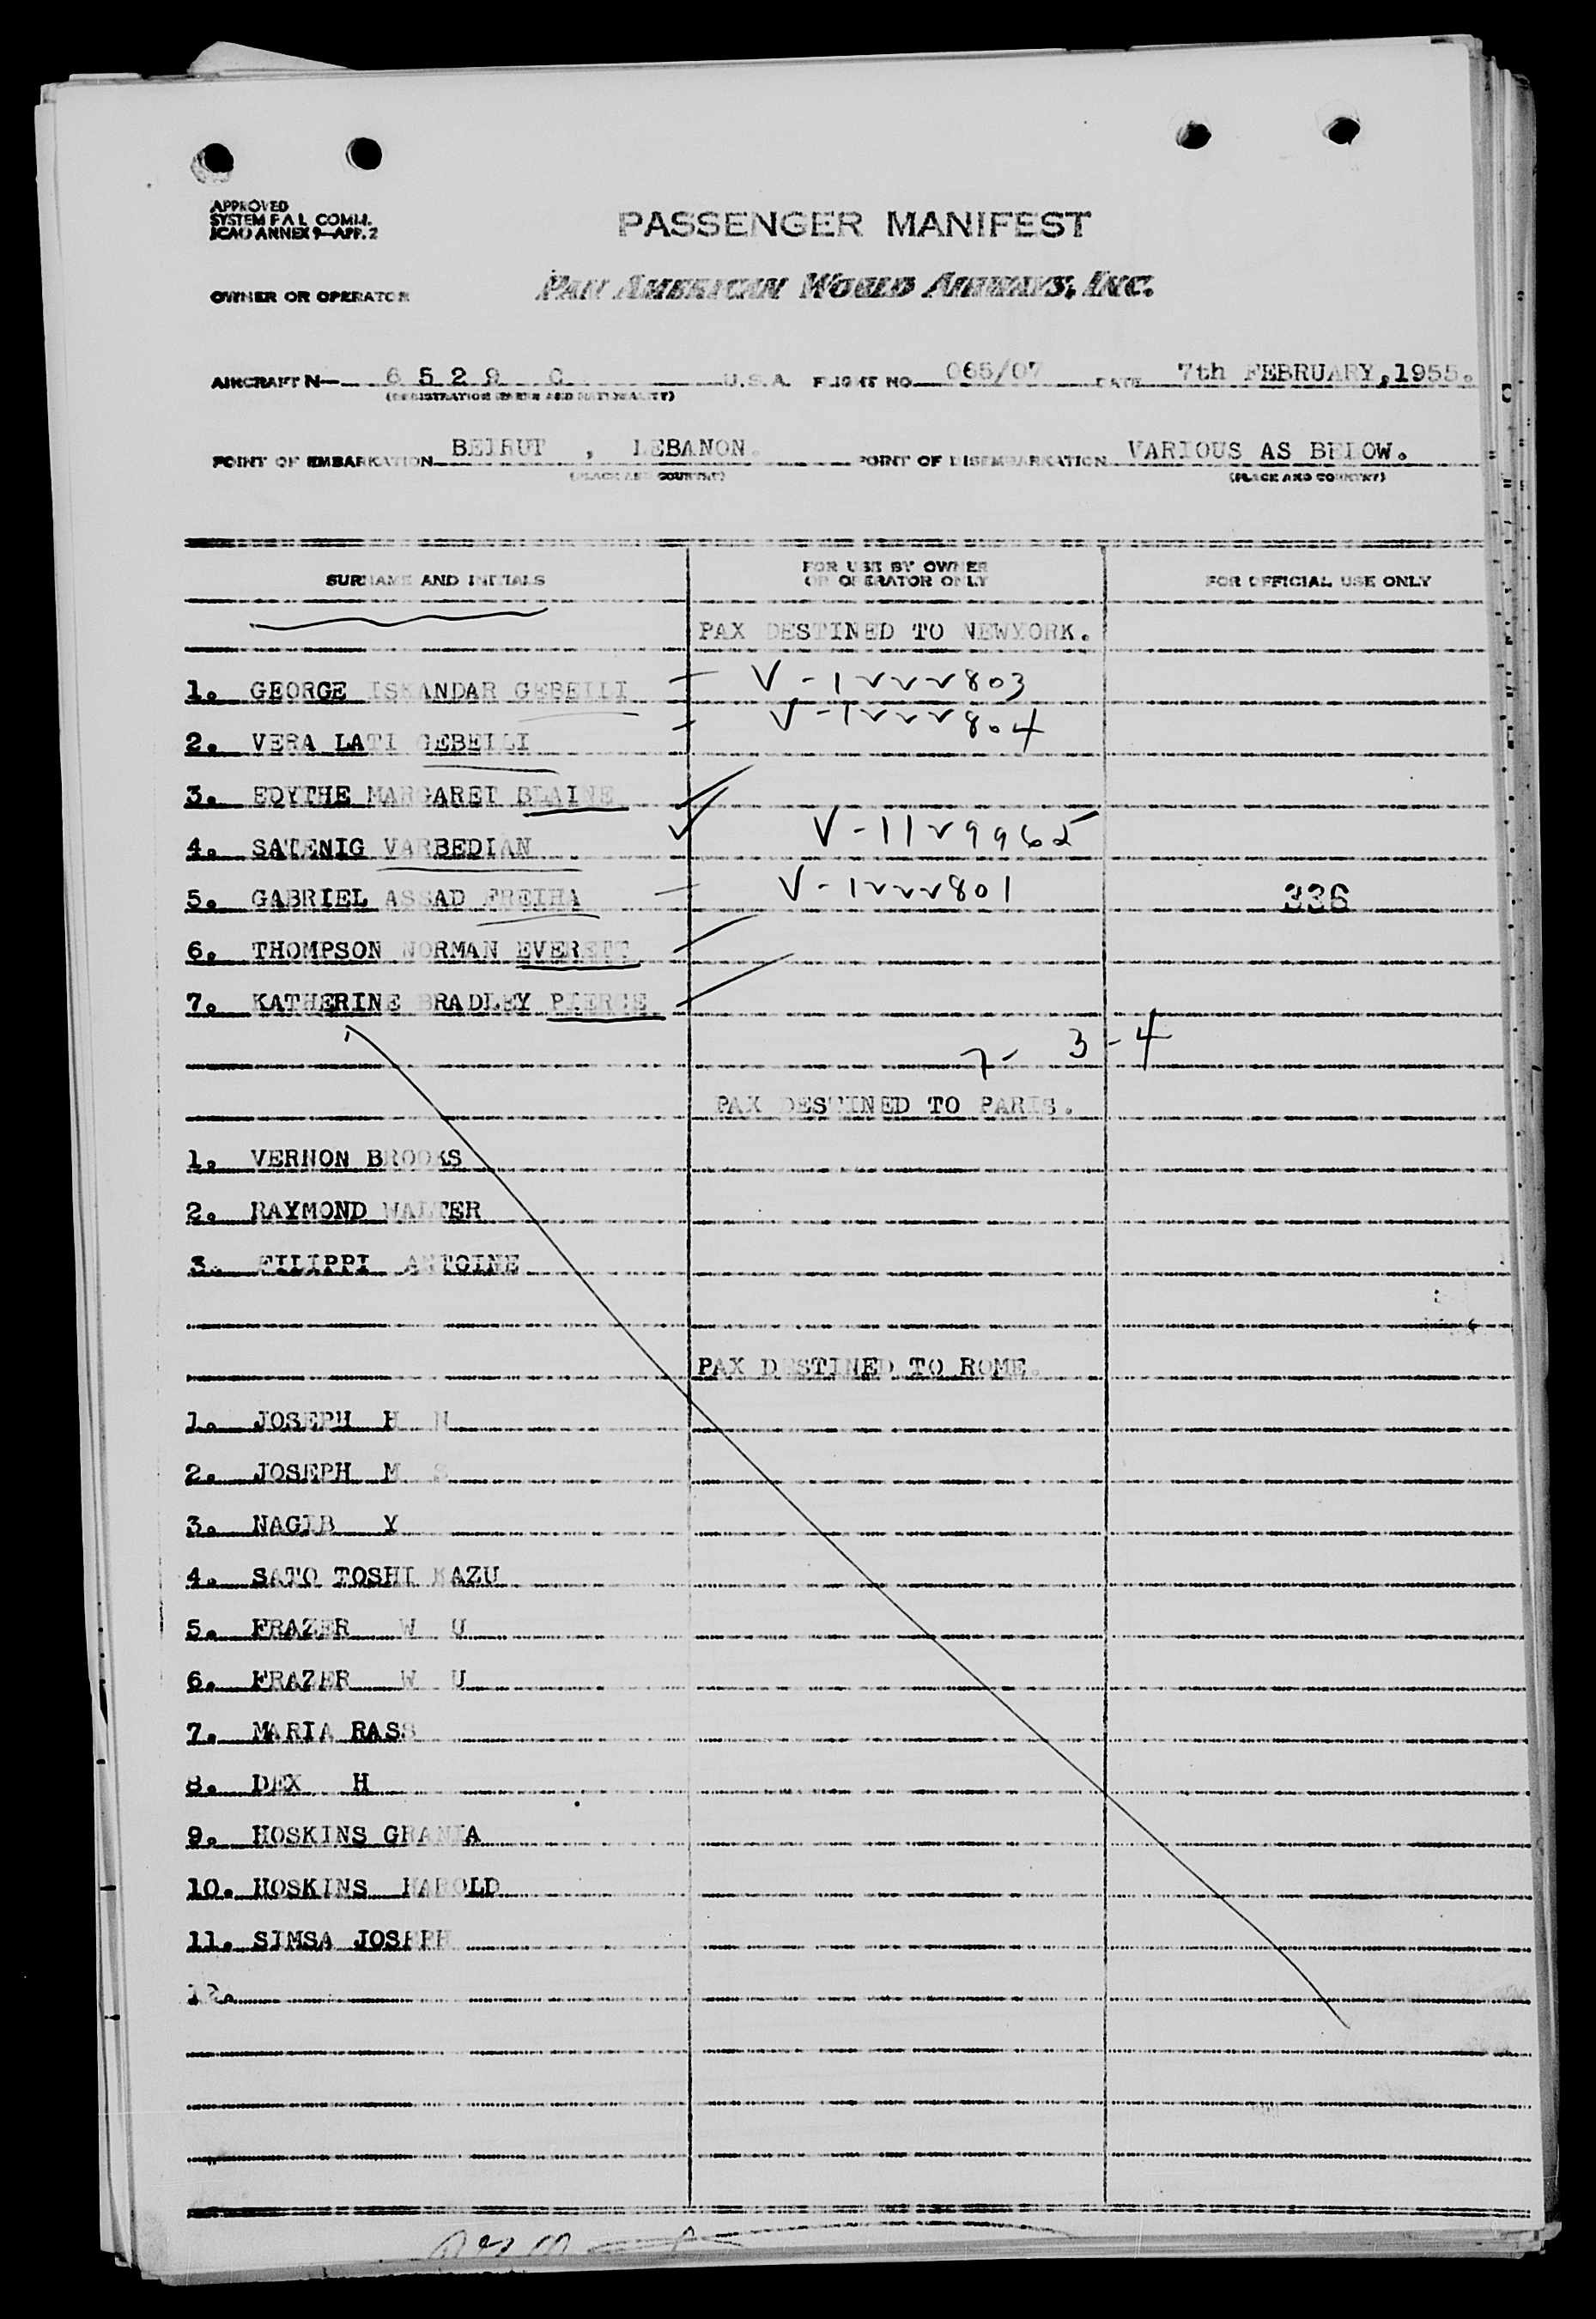 APPROVED
SYSTEM F A L COMM.
ICAO ANNEX 9—APP. 2
PASSENGER MANIFEST
OWNER OR OPERATOR
PAN AMERICAN WORLD AIRWAYS, INC.
AIRCRAFT N— 6529 C U.S.A. FLIGHT NO 065/07 DATE 7th FEBRUARY,1955.
(REGISTRATION MARKS AND NATIONALITY)
POINT OF EMBARKATION BEIRUT , LEBANON. POINT OF DISEMBARKATION VARIOUS AS BELOW.
(PLACE AND COUNTRY) (PLACE AND COUNTRY)
SURNAME AND INITIALS FOR USE BY OWNER OR OPERATOR ONLY FOR OFFICIAL USE ONLY
PAX DESTINED TO NEWYORK.
1. GEORGE ISKANDAR GEBEILI – V-1222803
2. VERA LATI GEBEILI – V-1222804
3. EDYTHE MARGARET BLAINE ✓
4. SATENIG VARBEDIAN ✓ V-1129965
5. GABRIEL ASSAD FREIHA – V-1222801 336
6. THOMPSON NORMAN EVERETT ✓
7. KATHERINE BRADLEY PIERCE ✓
7- 3-4
PAX DESTINED TO PARIS.
1. VERNON BROOKS
2. RAYMOND WALTER
3. FILIPPI ANTOINE
PAX DESTINED TO ROME.
1. JOSEPH H N
2. JOSEPH M S
3. NAGIB Y
4. SATO TOSHI KAZU
5. FRAZER W U
6. FRAZER W U
7. MARIA RASS
8. DEX H
9. HOSKINS GRANIA
10. HOSKINS HAROLD
11. SIMSA JOSEPH
12.